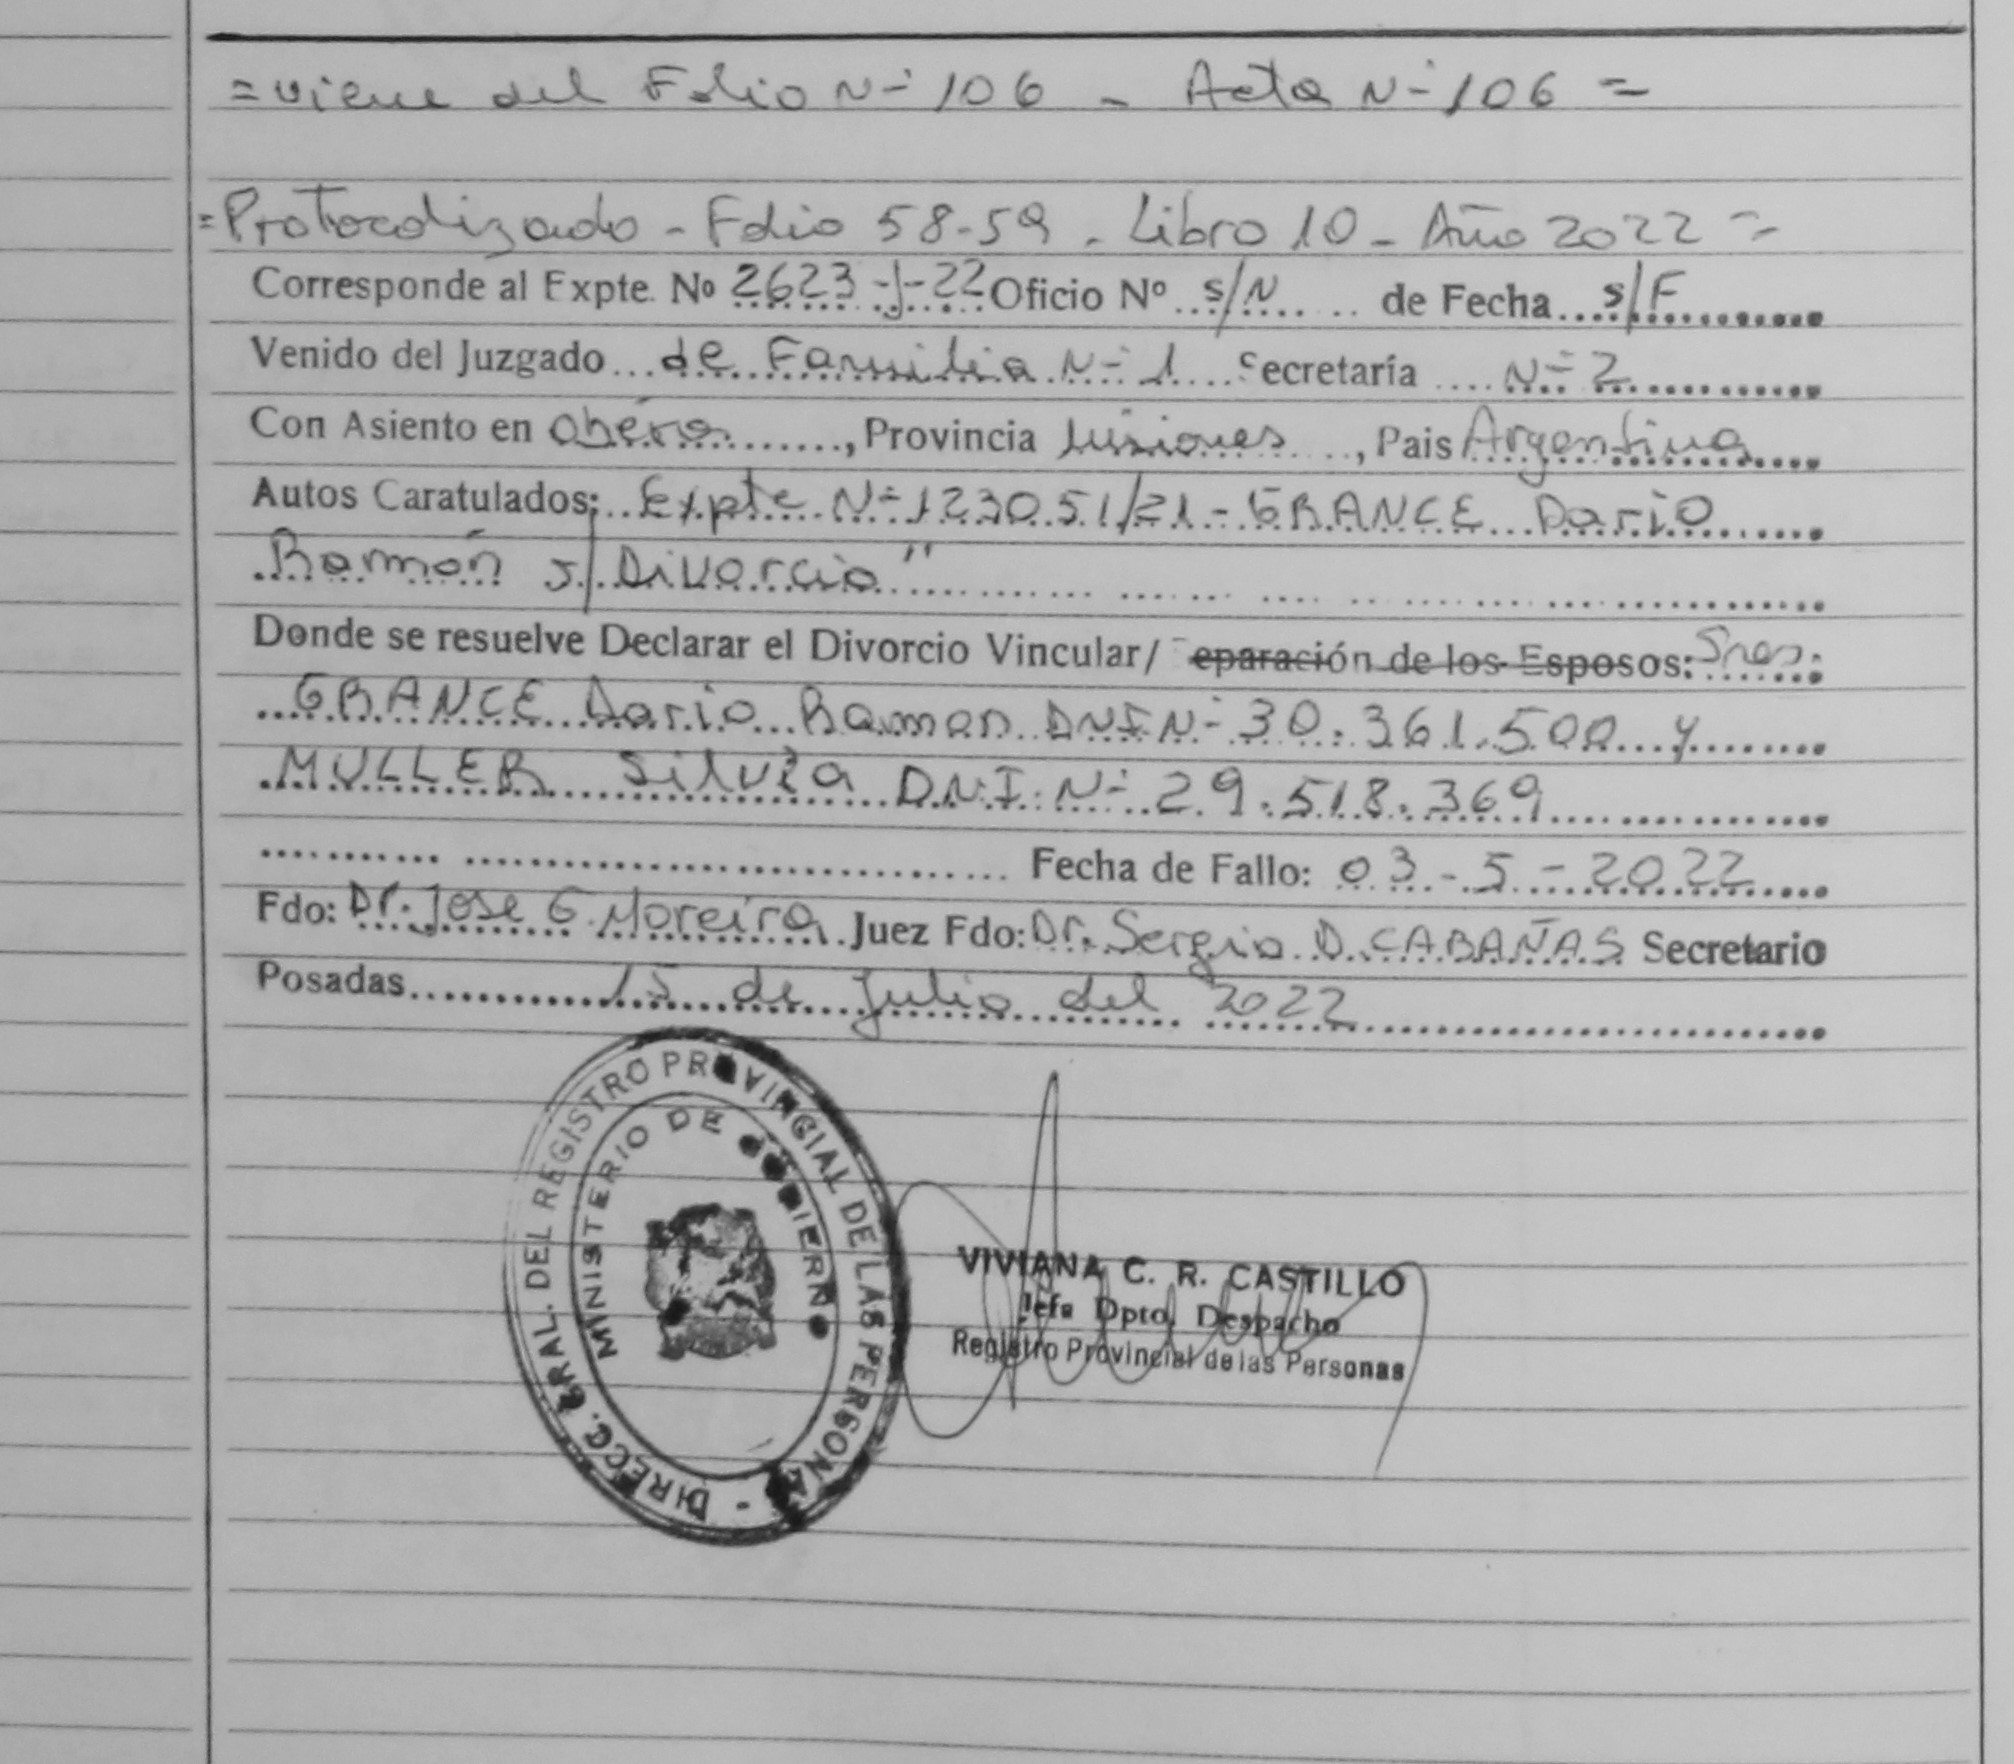 = viene del Folio N- 106 - Acta N- 106 =
= Protocolizado - Folio 58-59 - Libro 10 - Año 2022 =
Corresponde al Expte. No 2623-J-22 Oficio Nº s/N de Fecha s/F
Venido del Juzgado de Familia N- 1 Secretaría N- 2
Con Asiento en Oberá, Provincia Misiones, Pais Argentina
Autos Caratulados: Expte N- 123051/21 - GRANCE Dario
Ramón s/ Divorcio"
Donde se resuelve Declarar el Divorcio Vincular/ eparación de los Esposos: Sres.
GRANCE Dario Ramon DNI N- 30.361.500 y
MULLER Silvia D.N.I. N- 29.518.369
Fecha de Fallo: 03-5-2022
Fdo: Dr. Jose G. Moreira Juez Fdo: Dr. Sergio D. CABAÑAS Secretario
Posadas 15 de Julio del 2022
DIRECC. GRAL. DEL REGISTRO PROVINCIAL DE LAS PERSONAS -
MINISTERIO DE GOBIERNO
VIVIANA C. R. CASTILLO
Jefa Dpto. Despacho
Registro Provincial de las Personas